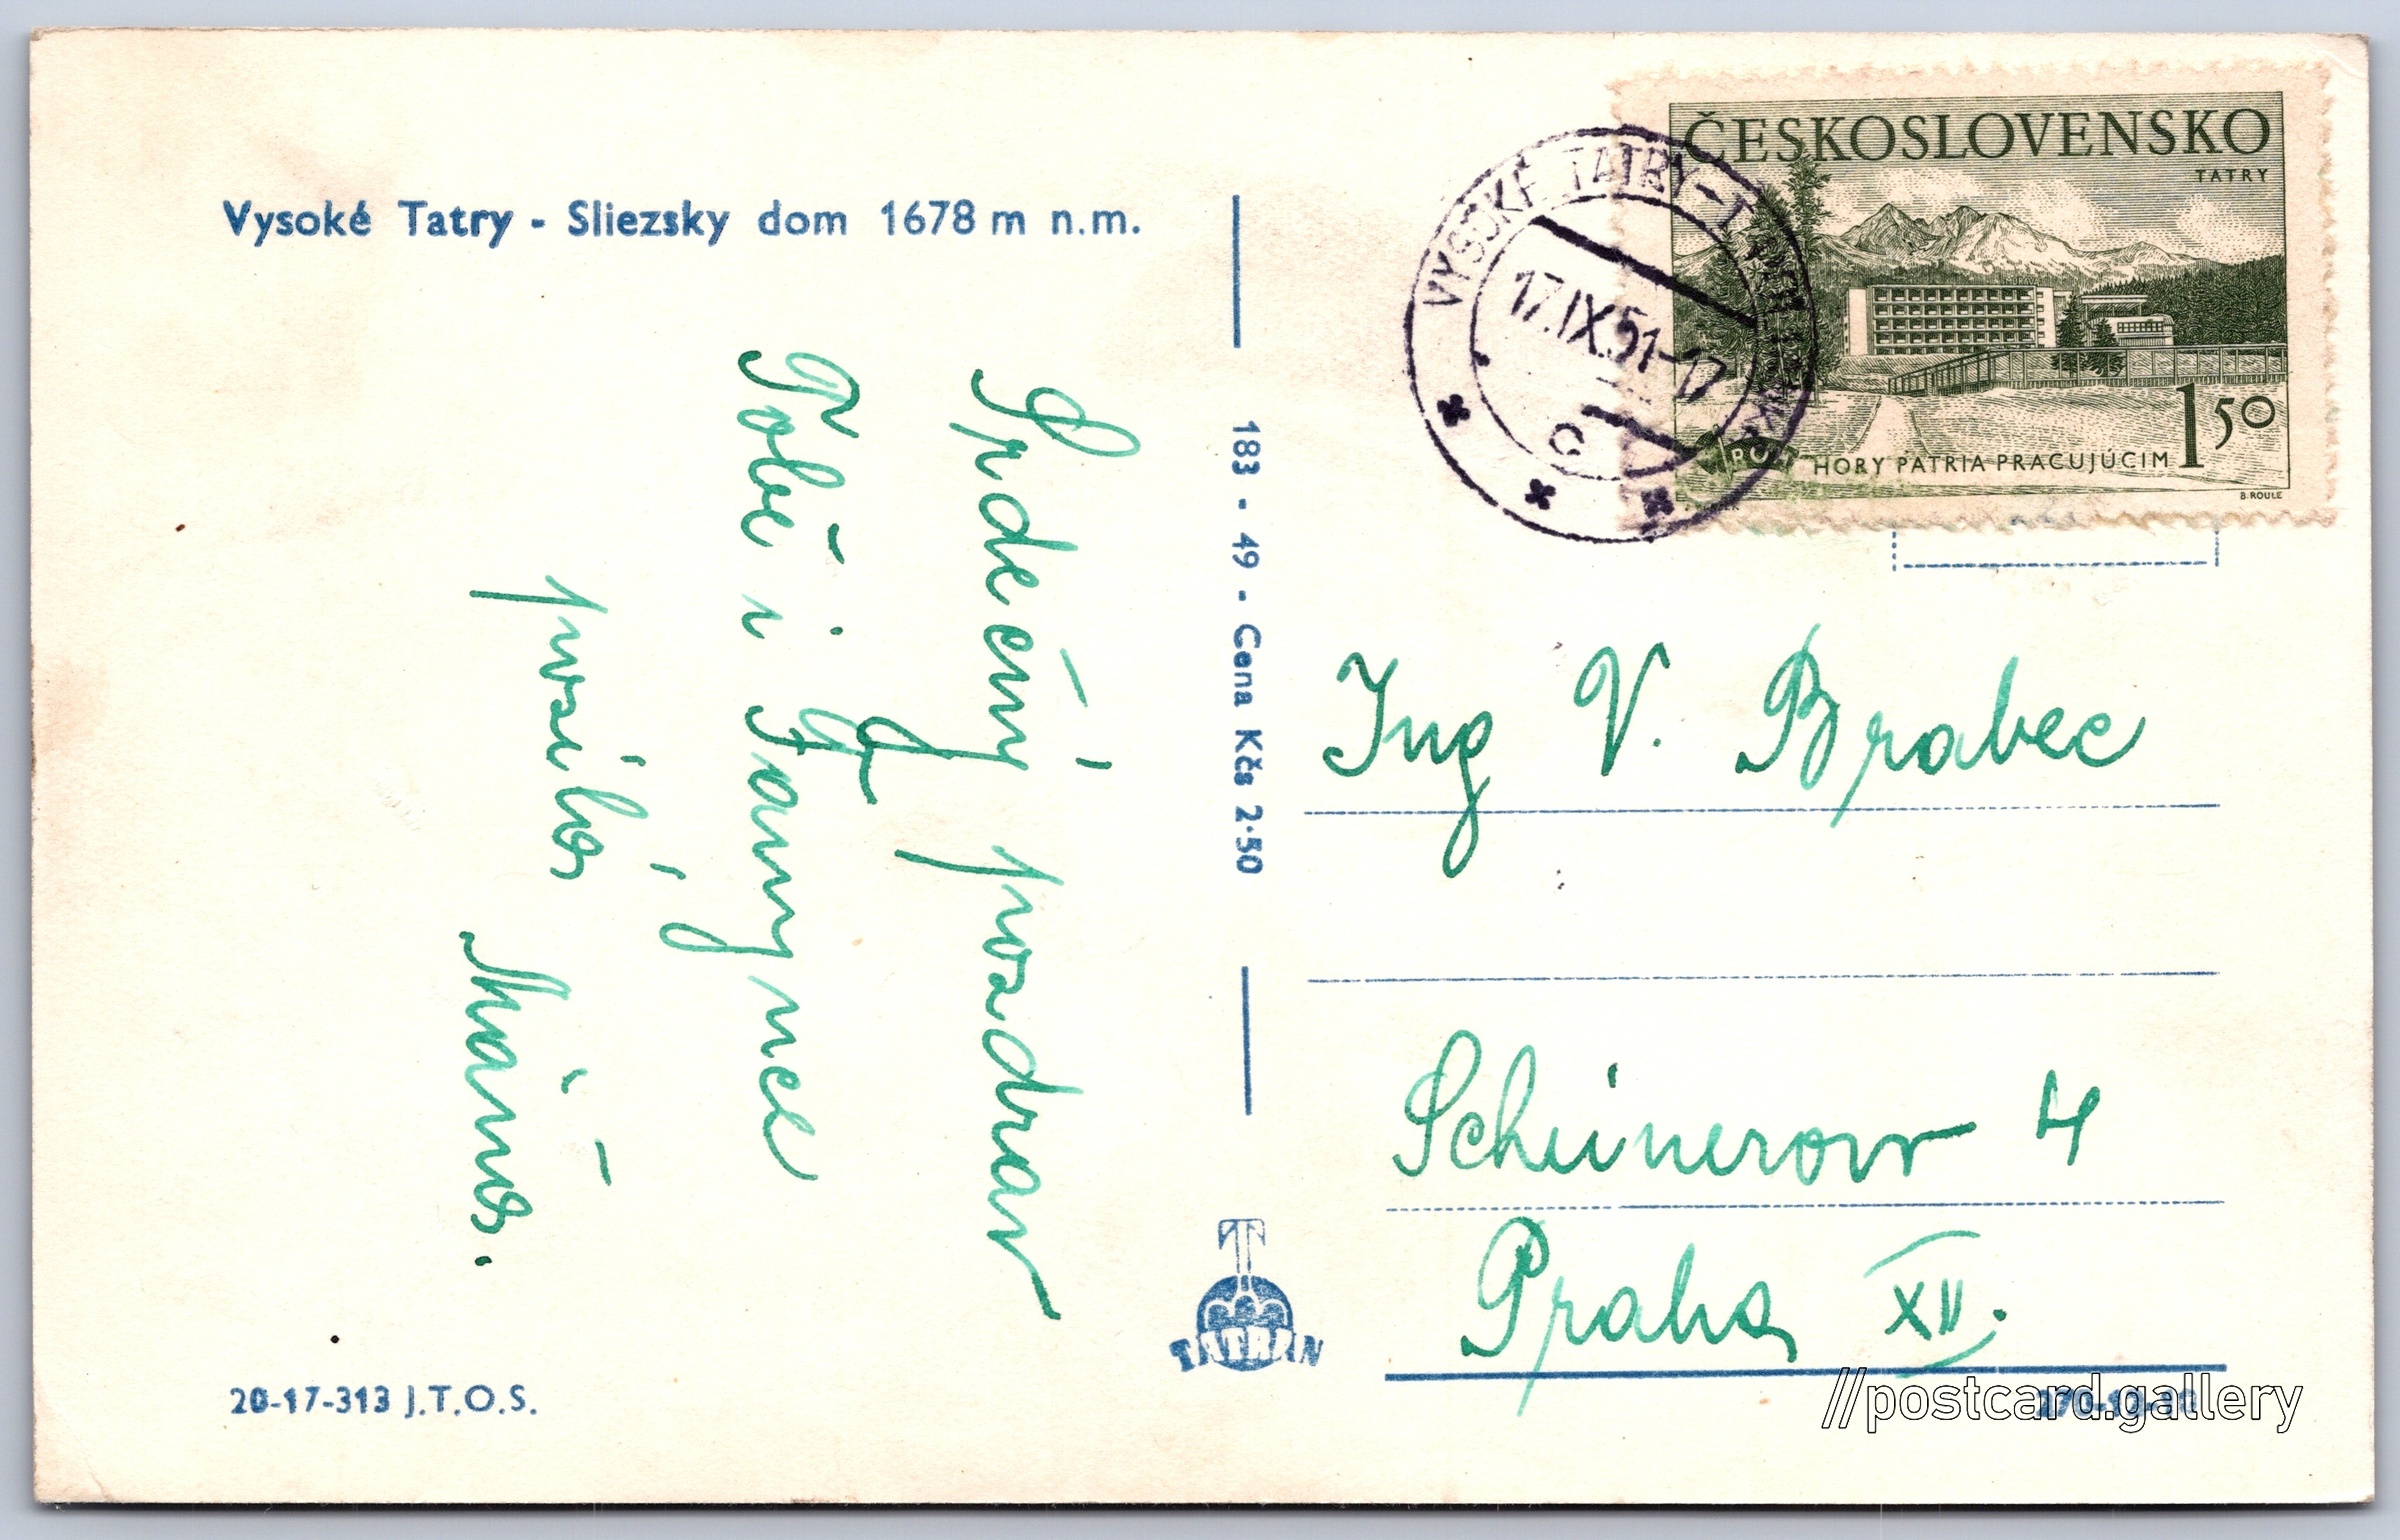 Vysoké Tatry - Sliezsky dom 1678 m n.m.
Srdečný pozdrav
Tobě i
posílá Máňa.
20-17-313 J.T.O.S.
183 - 49 - Cena Kčs 2·50
TATRAN
VYSOKÉ TATRY-
17.IX.51-17
C
ČESKOSLOVENSKO
TATRY
ROH HORY PATRIA PRACUJÚCIM
1 50
B. ROULE
Ing V. Brabec
Scheinerova 4
Praha XII.
//postcard.gallery